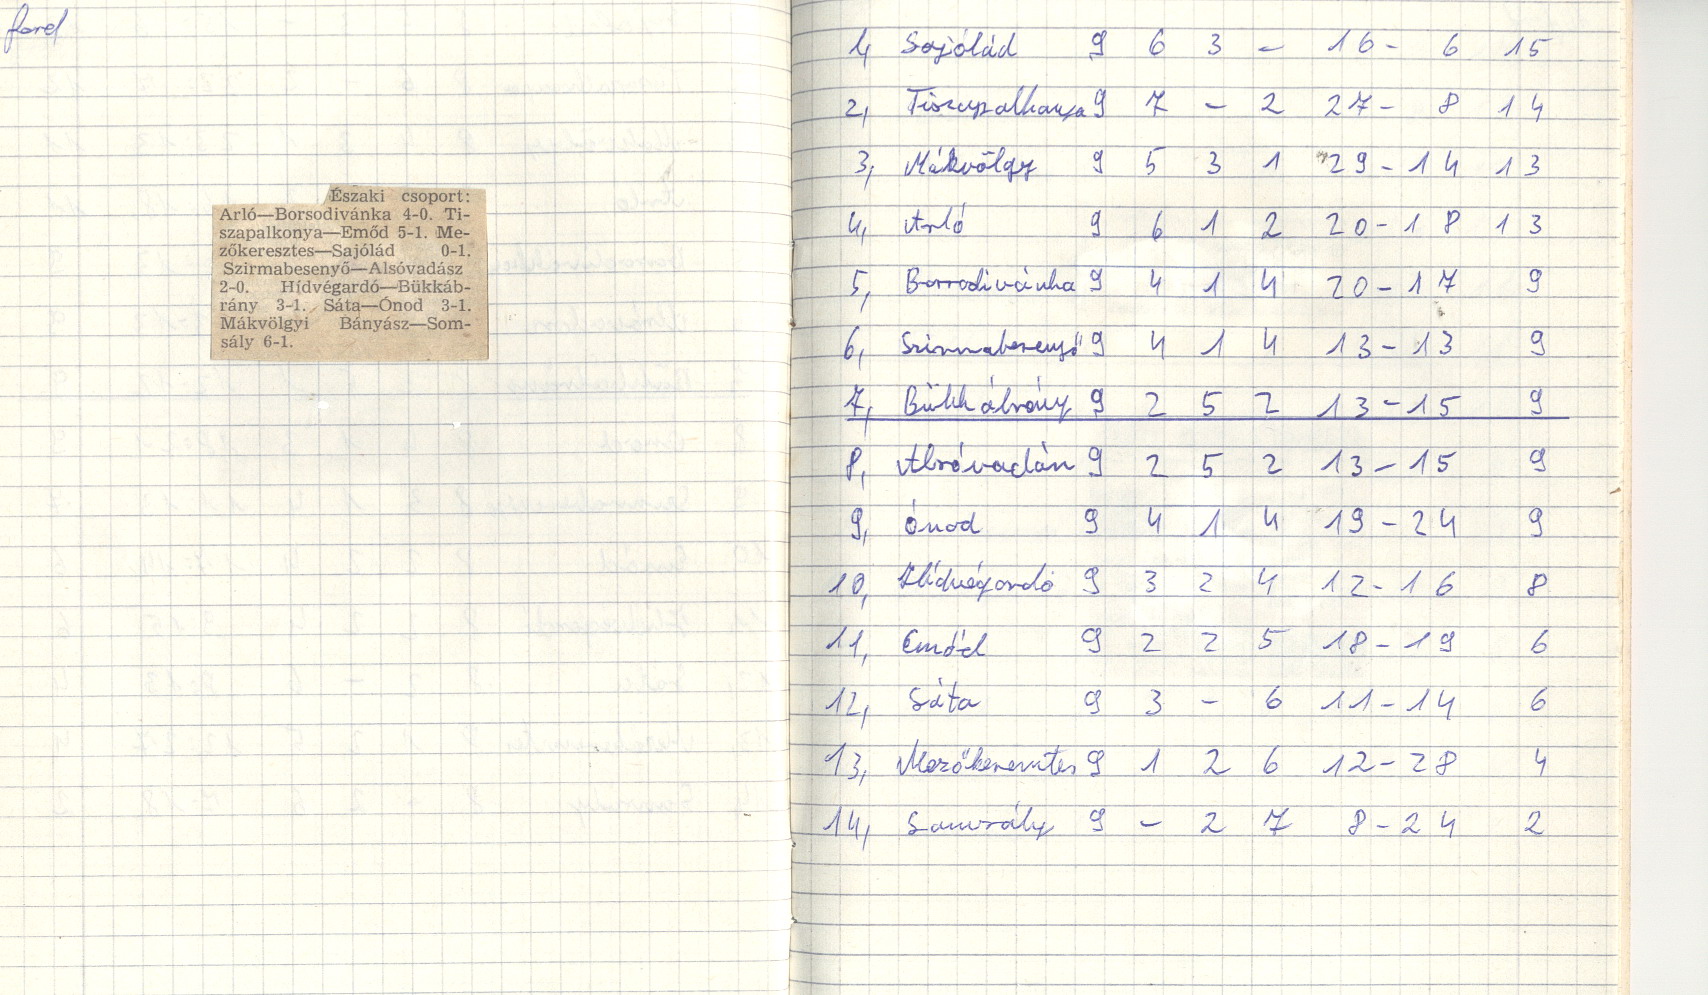 ford
Északi csoport:
Arló—Borsodivánka 4-0. Ti-
szapalkonya—Emőd 5-1. Me-
zőkeresztes—Sajólád 0-1.
Szirmabesenyő—Alsóvadász
2-0. Hídvégardó—Bükkáb-
rány 3-1. Sáta—Ónod 3-1.
Mákvölgyi Bányász—Som-
sály 6-1.
1, Sajólád 9 6 3 – 16 - 6 15
2, Tiszapalkonya 9 7 – 2 27 - 8 14
3, Mákvölgy 9 5 3 1 29 - 14 13
4, Arló 9 6 1 2 20 - 18 13
5, Borsodivánka 9 4 1 4 20 - 17 9
6, Szirmabesenyő 9 4 1 4 13 - 13 9
7, Bükkábrány 9 2 5 2 13 - 15 9
8, Alsóvadász 9 2 5 2 13 - 15 9
9, Ónod 9 4 1 4 19 - 24 9
10, Hídvégardó 9 3 2 4 12 - 16 8
11, Emőd 9 2 2 5 18 - 19 6
12, Sáta 9 3 – 6 11 - 14 6
13, Mezőkeresztes 9 1 2 6 12 - 28 4
14, Somsály 9 – 2 7 8 - 24 2